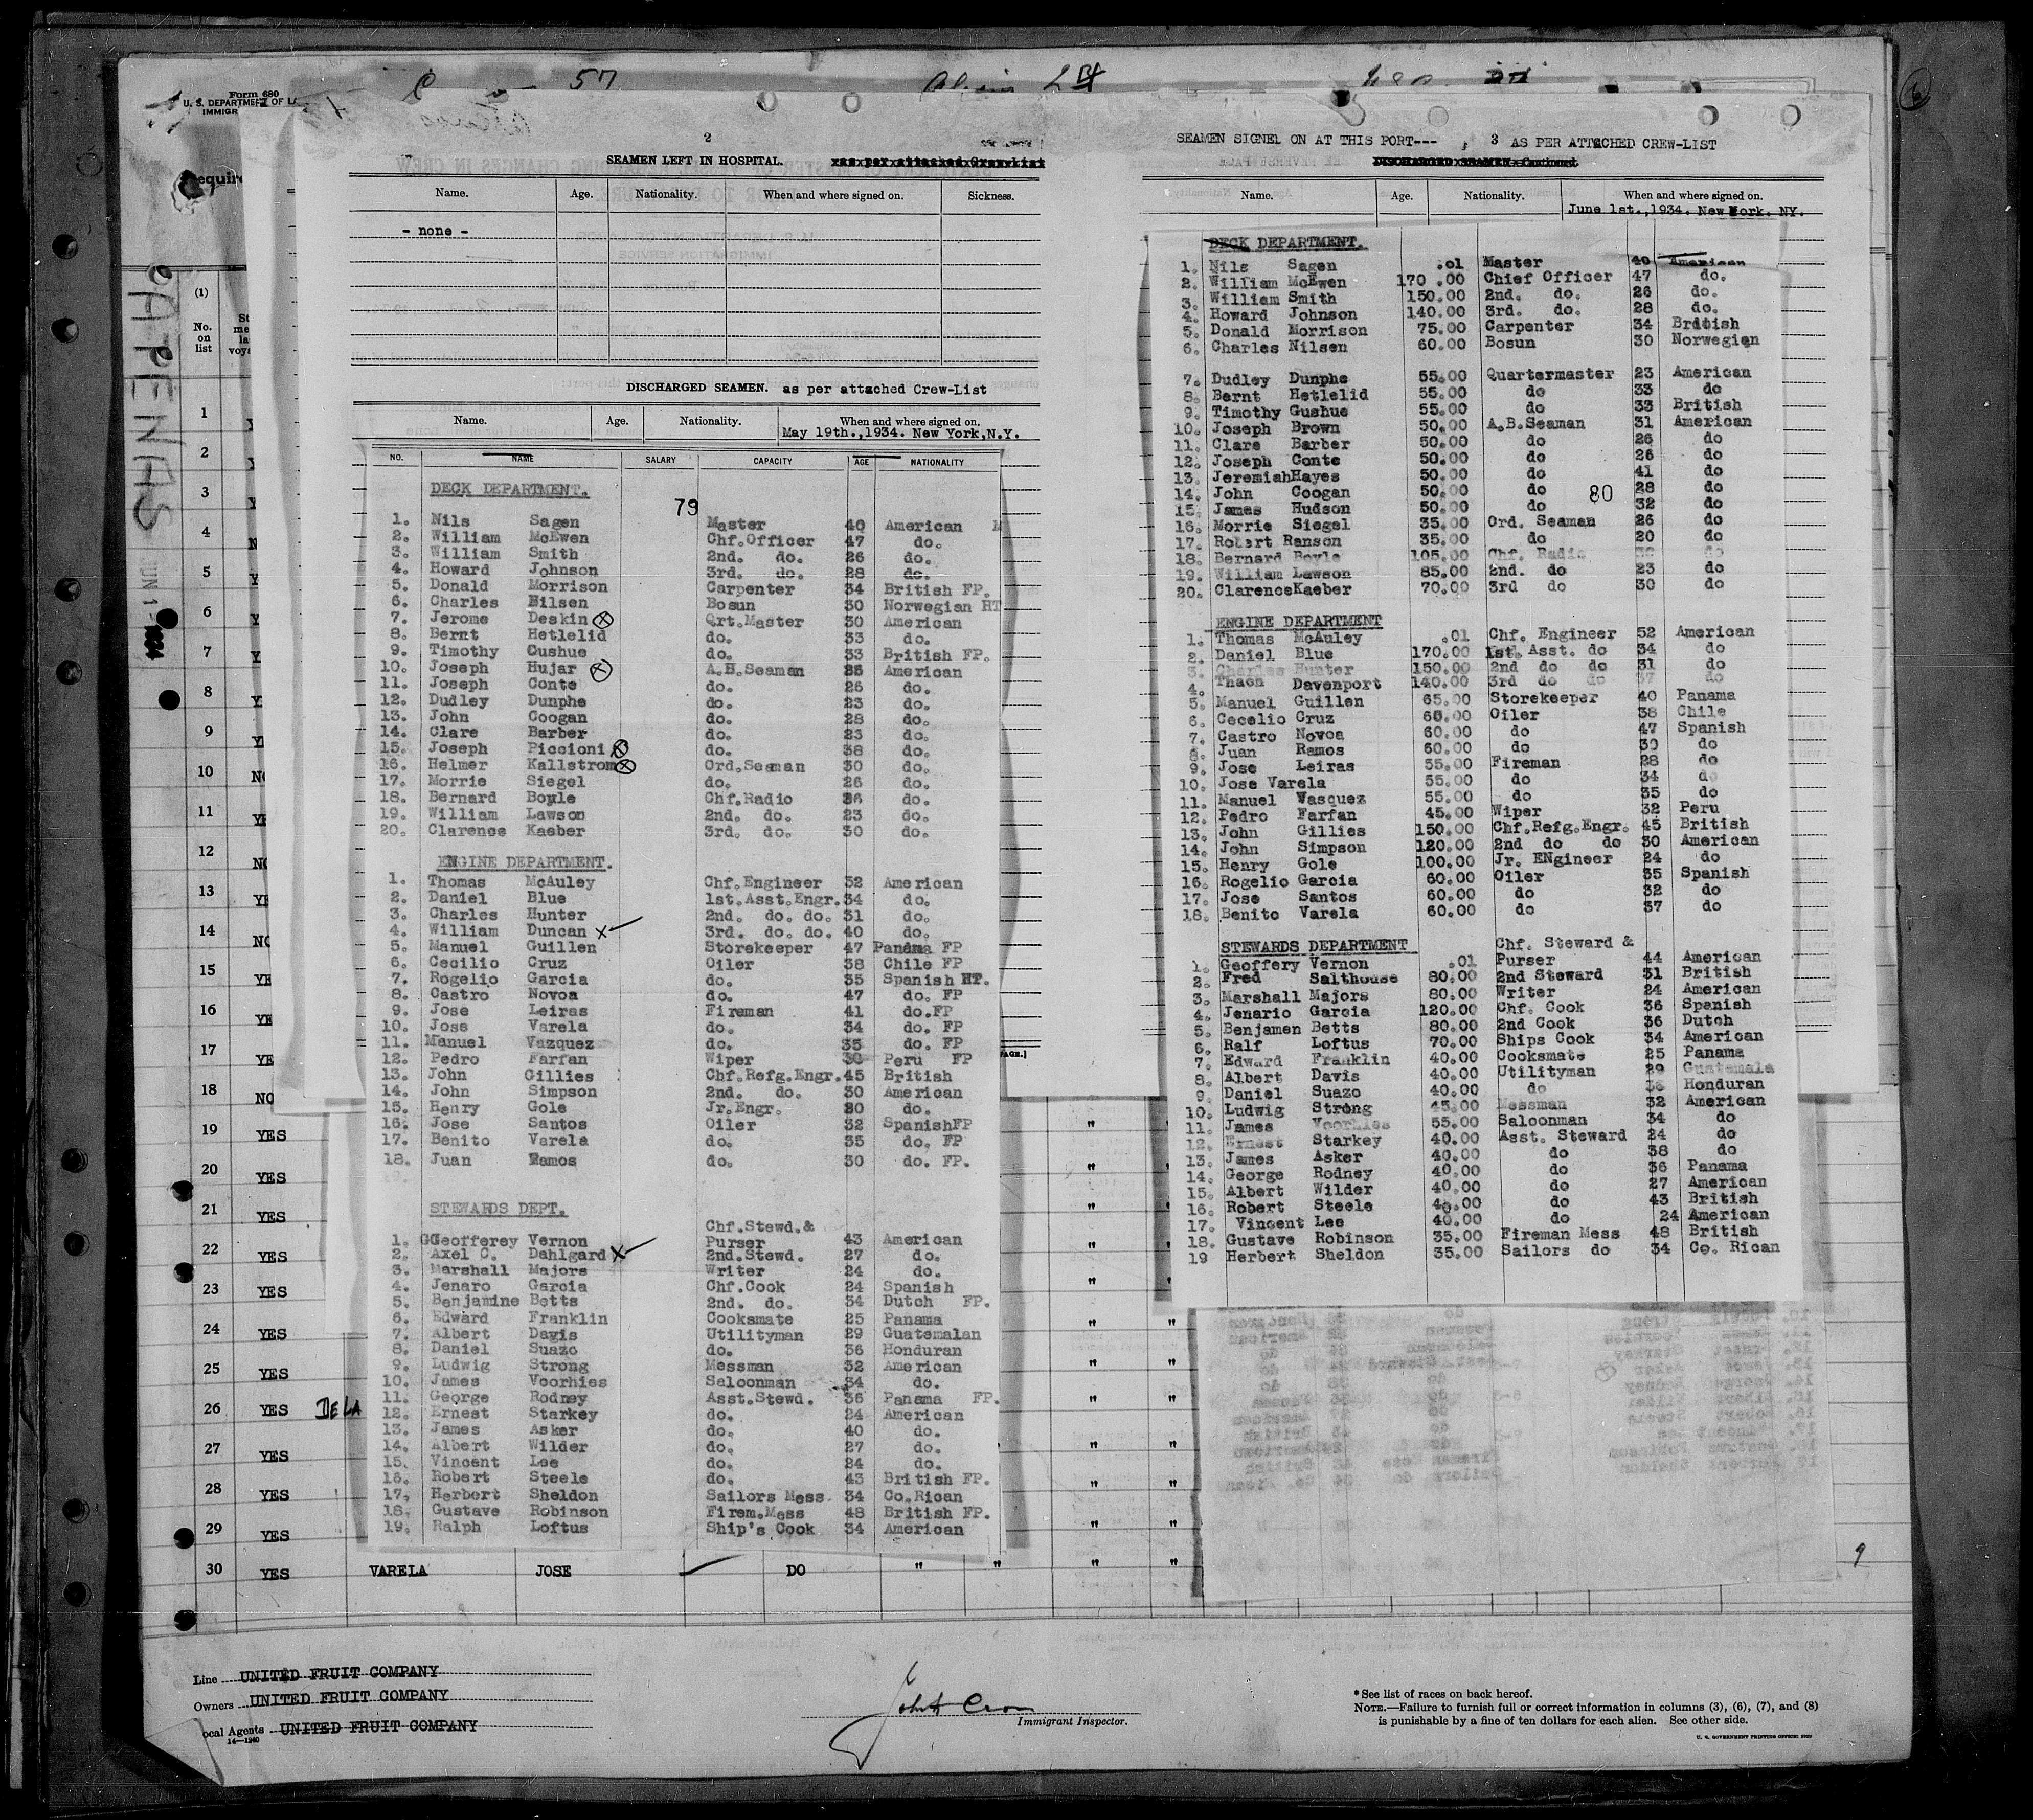 Form 680
U. S. DEPARTMENT OF
57
2
SEAMEN LEFT IN HOSPITAL. as per attached Crew-list
Name. Age. Nationality. When and where signed on. Sickness.
- none -
DISCHARGED SEAMEN. as per attached Crew-List
Name. Age. Nationality. When and where signed on.
May 19th.,1934. New York,N.Y.
NO. NAME SALARY CAPACITY AGE NATIONALITY
DECK DEPARTMENT.
79
1. Nils Sagen Master 40 American
2. William McEwen Chf.Officer 47 do.
3. William Smith 2nd. do. 26 do.
4. Howard Johnson 3rd. do. 28 do.
5. Donald Morrison Carpenter 34 British FP.
6. Charles Nilsen Bosun 30 Norwegian HT
7. Jerome Deskin Qrt.Master 30 American
8. Bernt Hetlelid do. 33 do.
9. Timothy Cushue do. 33 British FP.
10. Joseph Hujar A.H.Seaman American
11. Joseph Conte do. 26 do.
12. Dudley Dunphe do. 23 do.
13. John Coogan do. 28 do.
14. Clare Barber do. 23 do.
15. Joseph Piccioni do. 38 do.
16. Helmer Kallstrom Ord.Seaman 30 do.
17. Morrie Siegel do. 26 do.
18. Bernard Boyle Chf.Radio do.
19. William Lawson 2nd. do. 23 do.
20. Clarence Kaeber 3rd. do. 30 do.
ENGINE DEPARTMENT.
1. Thomas McAuley Chf.Engineer 52 American
2. Daniel Blue 1st.Asst.Engr. 34 do.
3. Charles Hunter 2nd. do. do. 31 do.
4. William Duncan x 3rd. do. do. 40 do.
5. Manuel Guillen Storekeeper 47 Panama FP
6. Cecilio Cruz Oiler 38 Chile FP
7. Rogelio Garcia do. 35 Spanish HT.
8. Castro Novoa do. 47 do. FP
9. Jose Leiras Fireman 41 do.FP
10. Jose Varela do. 34 do. FP
11. Manuel Vazquez do. 35 do. FP
12. Pedro Farfan Wiper 30 Peru FP
13. John Gillies Chf.Refg.Engr. 45 British
14. John Simpson 2nd. do. 30 American
15. Henry Gole Jr.Engr. do.
16. Jose Santos Oiler 32 SpanishFP
17. Benito Varela do. 35 do. FP
18. Juan Ramos do. 30 do. FP.
STEWARDS DEPT.
Chf.Stewd.&
1. GGeofferey Vernon Purser 43 American
2. Axel C. Dahlgard X 2nd.Stewd. 27 do.
3. Marshall Majors Writer 24 do.
4. Jenaro Garcia Chf.Cook 24 Spanish
5. Benjamine Betts 2nd. do. 34 Dutch FP.
6. Edward Franklin Cooksmate 25 Panama
7. Albert Davis Utilityman 29 Guatemalan
8. Daniel Suazo do. 36 Honduran
9. Ludwig Strong Messman 32 American
10. James Voorhies Saloonman 34 do.
11. George Rodney Asst.Stewd. 36 Panama FP.
12. Ernest Starkey do. 24 American
13. James Asker do. 40 do.
14. Albert Wilder do. 27 do.
15. Vincent Lee do. 24 do.
16. Robert Steele do. 43 British FP.
17. Herbert Sheldon Sailors Mess. 34 Co.Rican
18. Gustave Robinson Firem.Mess 48 British FP.
19. Ralph Loftus Ship's Cook 34 American
SEAMEN SIGNEL ON AT THIS PORT---, 3 AS PER ATTACHED CREW-LIST
DISCHARGED SEAMEN-Continued
Name. Age. Nationality. When and where signed on.
June 1st.,1934. New York. NY.
DECK DEPARTMENT.
1. Nils Sagen .01 Master 40 American
2. William McEwen 170 .00 Chief Officer 47 do.
3. William Smith 150.00 2nd. do. 26 do.
4. Howard Johnson 140.00 3rd. do. 28 do.
5. Donald Morrison 75.00 Carpenter 34 British
6. Charles Nilsen 60.00 Bosun 30 Norwegian
7. Dudley Dunphe 55.00 Quartermaster 23 American
8. Bernt Hetlelid 55.00 do 33 do
9. Timothy Gushue 55.00 do 33 British
10. Joseph Brown 50.00 A.B.Seaman 31 American
11. Clare Barber 50.00 do 26 do
12. Joseph Conte 50.00 do 26 do
13. JeremiahHayes 50.00 do 41 do
14. John Coogan 50.00 do 80 28 do
15. James Hudson 50.00 do 32 do
16. Morrie Siegel 35.00 Ord. Seaman 26 do
17. Robert Ranson 35.00 do 20 do
18. Bernard Boyle 105.00 Chf. Radio do
19. William Lawson 85.00 2nd. do 23 do
20. ClarenceKaeber 70.00 3rd do 30 do
ENGINE DEPARTMENT
1. Thomas McAuley .01 Chf. Engineer 52 American
2. Daniel Blue 170.00 1st. Asst. do 34 do
3. Charles Hunter 150.00 2nd do do 31 do
4. Thaon Davenport 140.00 3rd do do 37 do
5. Manuel Guillen 65.00 Storekeeper 40 Panama
6. Cecelio Cruz 60.00 Oiler 38 Chile
7. Castro Novoa 60.00 do 47 Spanish
8. Juan Ramos 60.00 do 30 do
9. Jose Leiras 55.00 Fireman 28 do
10. Jose Varela 55.00 do 34 do
11. Manuel Vasquez 55.00 do 35 do
12. Pedro Farfan 45.00 Wiper 32 Peru
13. John Gillies 150.00 Chf.Refg.Engr. 45 British
14. John Simpson 120.00 2nd do do 30 American
15. Henry Gole 100.00 Jr. ENgineer 24 do
16. Rogelio Garcia 60.00 Oiler 35 Spanish
17. Jose Santos 60.00 do 32 do
18. Benito Varela 60.00 do 37 do
STEWARDS DEPARTMENT Chf. Steward &
1. Geoffery Vernon .01 Purser 44 American
2. Fred Salthouse 80.00 2nd Steward 31 British
3. Marshall Majors 80.00 Writer 24 American
4. Jenario Garcia 120.00 Chf. Cook 36 Spanish
5. Benjamen Betts 80.00 2nd Cook 36 Dutch
6. Ralf Loftus 70.00 Ships Cook 34 American
7. Edward Franklin 40.00 Cooksmate 25 Panama
8. Albert Davis 40.00 Utilityman 29 Guatemala
9. Daniel Suazo 40.00 do 36 Honduran
10. Ludwig Strong 45.00 Messman 32 American
11. James Voorhies 55.00 Saloonman 34 do
12. Ernest Starkey 40.00 Asst. Steward 24 do
13. James Asker 40.00 do 38 do
14. George Rodney 40.00 do 36 Panama
15. Albert Wilder 40.00 do 27 American
16. Robert Steele 40.00 do 43 British
17. Vincent Lee 40.00 do 24 American
18. Gustave Robinson 35.00 Fireman Mess 48 British
19 Herbert Sheldon 35.00 Sailors do 34 Co. Rican
PAPENAS
(1)
No. on list
1
2
3
4
5
6
7
8
9
10
11
12
13
14
15
16
17
18
19 YES
20 YES
21 YES
22 YES
23 YES
24 YES
25 YES
26 YES DE LA
27 YES
28 YES
29 YES
30 YES VARELA JOSE DO " " " "
Line UNITED FRUIT COMPANY
Owners UNITED FRUIT COMPANY
ocal Agents UNITED FRUIT COMPANY
14—1240
Immigrant Inspector.
* See list of races on back hereof.
NOTE.—Failure to furnish full or correct information in columns (3), (6), (7), and (8)
is punishable by a fine of ten dollars for each alien. See other side.
U. S. GOVERNMENT PRINTING OFFICE: